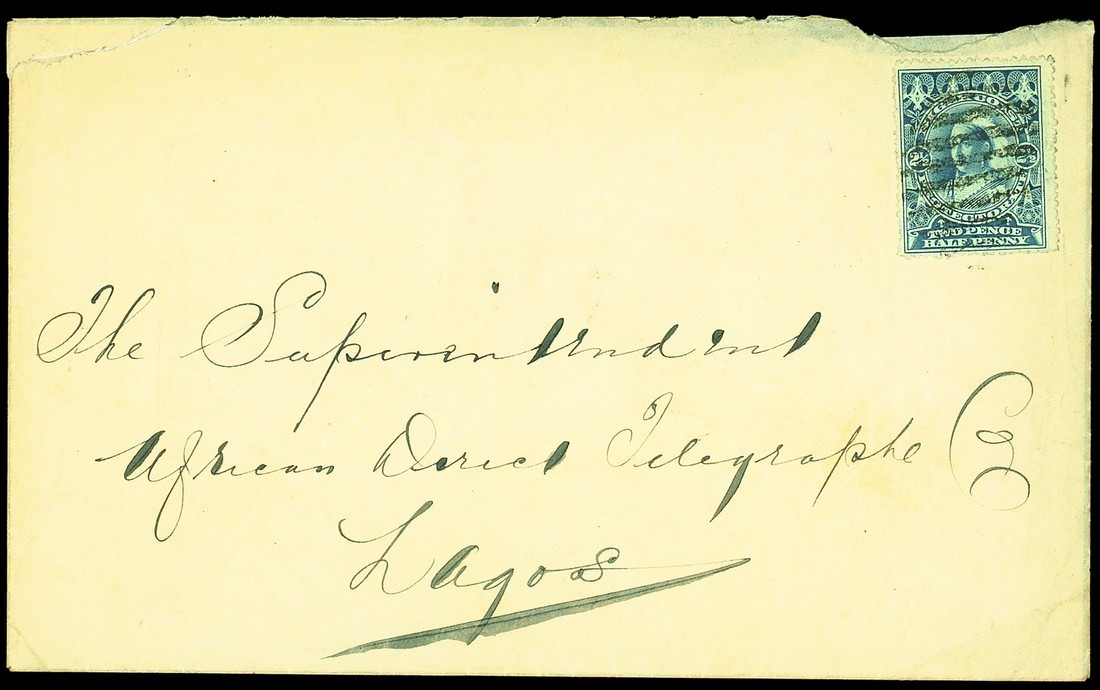 NIGER COAST
2½ 2½
PROTECTORATE
TWO PENCE
HALF PENNY
The Superintendent
African Direct Telegraphe Co
Lagos